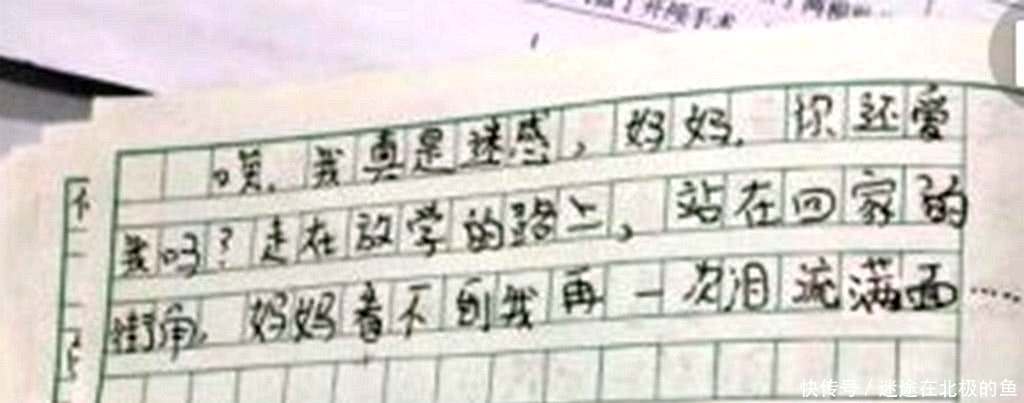 唉,我真是迷惑,妈妈,你还爱
我吗?走在放学的路上,站在回家的
街角,妈妈看不到我再一次泪流满面……
快传号/迷途在北极的鱼